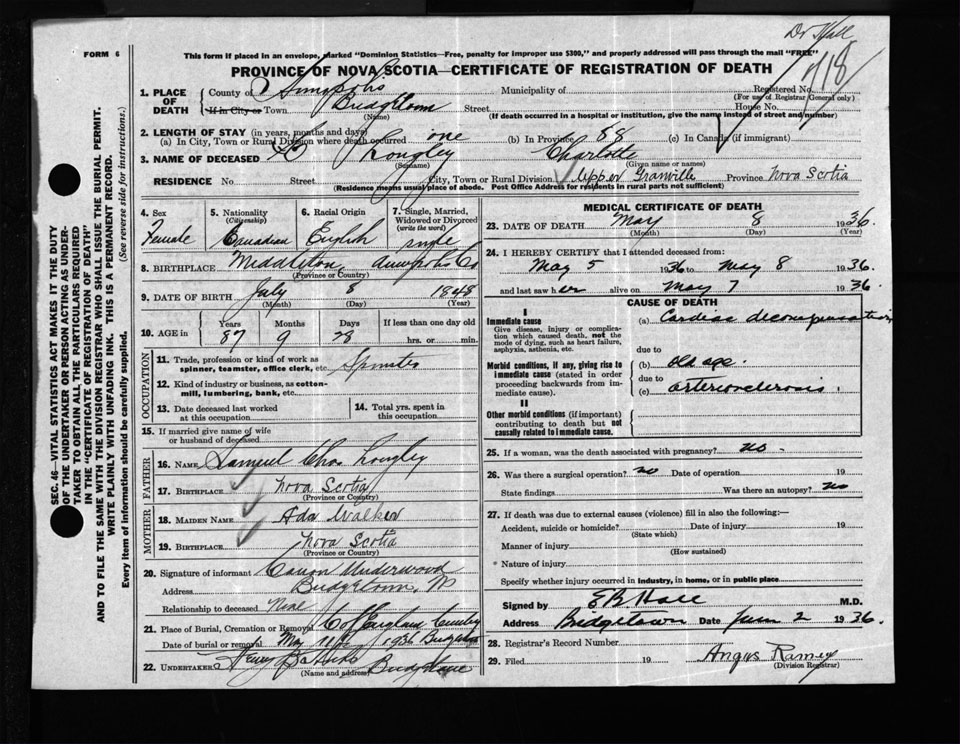 Dr Hall
718
FORM 6
This form if placed in an envelope, marked "Dominion Statistics—Free, penalty for improper use $300," and properly addressed will pass through the mail "FREE"
PROVINCE OF NOVA SCOTIA—CERTIFICATE OF REGISTRATION OF DEATH
1. PLACE OF DEATH
County of Municipality of Registered No.
(For use of Registrar General only)
If in City or Town Street House No.
(Name) (If death occurred in a hospital or institution, give the name instead of street and number)
2. LENGTH OF STAY (in years, months and days)
(a) In City, Town or Rural Division where death occurred one (b) In Province 88 (c) In Canada (if immigrant)
3. NAME OF DECEASED Longley Charlotte
(Surname) (Given name or names)
RESIDENCE No. Street City, Town or Rural Division Upper Granville Province Nova Scotia
(Residence means usual place of abode. Post Office Address for residents in rural parts not sufficient)
4. Sex Female
5. Nationality (Citizenship) Canadian
6. Racial Origin English
7. Single, Married, Widowed or Divorced (write the word) single
8. BIRTHPLACE Middleton, Annapolis Co
(Province or Country)
9. DATE OF BIRTH July 8 1848
(Month) (Day) (Year)
10. AGE in Years Months Days If less than one day old
87 9 28 hrs. or min.
OCCUPATION
11. Trade, profession or kind of work as spinner, teamster, office clerk, etc. Spinster
12. Kind of industry or business, as cotton-mill, lumbering, bank, etc.
13. Date deceased last worked at this occupation
14. Total yrs. spent in this occupation
15. If married give name of wife or husband of deceased
FATHER
16. NAME Samuel Chas Longley
17. BIRTHPLACE Nova Scotia
(Province or Country)
MOTHER
18. MAIDEN NAME Ada Walker
19. BIRTHPLACE Nova Scotia
(Province or Country)
20. Signature of informant Canon Underwood
Address
Relationship to deceased
21. Place of Burial, Cremation or Removal C of England
Date of burial or removal May 1936
22. UNDERTAKER Henry
(Name and address)
MEDICAL CERTIFICATE OF DEATH
23. DATE OF DEATH May 8 1936
(Month) (Day) (Year)
24. I HEREBY CERTIFY that I attended deceased from:
May 5 1936 to May 8 1936
and last saw her alive on May 7 1936
CAUSE OF DEATH
I
Immediate cause (a) Cardiac decompensation
Give disease, injury or complication which caused death, not the mode of dying, such as heart failure, asphyxia, asthenia, etc.
due to
Morbid conditions, if any, giving rise to immediate cause (stated in order proceeding backwards from immediate cause).
(b) old age.
due to
(c) arteriosclerosis.
II
Other morbid conditions (if important) contributing to death but not causally related to immediate cause.
25. If a woman, was the death associated with pregnancy? no.
26. Was there a surgical operation? no Date of operation 19
State findings Was there an autopsy? no
27. If death was due to external causes (violence) fill in also the following:—
Accident, suicide or homicide? Date of injury 19
(State which)
Manner of injury
(How sustained)
Nature of injury
Specify whether injury occurred in industry, in home, or in public place
Signed by M.D.
Address Bridgetown Date June 2 1936.
28. Registrar's Record Number
29. Filed 19 Angus Ramey
(Division Registrar)
SEC. 46—VITAL STATISTICS ACT MAKES IT THE DUTY
OF THE UNDERTAKER OR PERSON ACTING AS UNDER-
TAKER TO OBTAIN ALL THE PARTICULARS REQUIRED
IN THE "CERTIFICATE OF REGISTRATION OF DEATH"
AND TO FILE THE SAME WITH THE DIVISION REGISTRAR WHO SHALL ISSUE THE BURIAL PERMIT.
WRITE PLAINLY WITH UNFADING INK. THIS IS A PERMANENT RECORD.
Every item of information should be carefully supplied.
(See reverse side for instructions.)